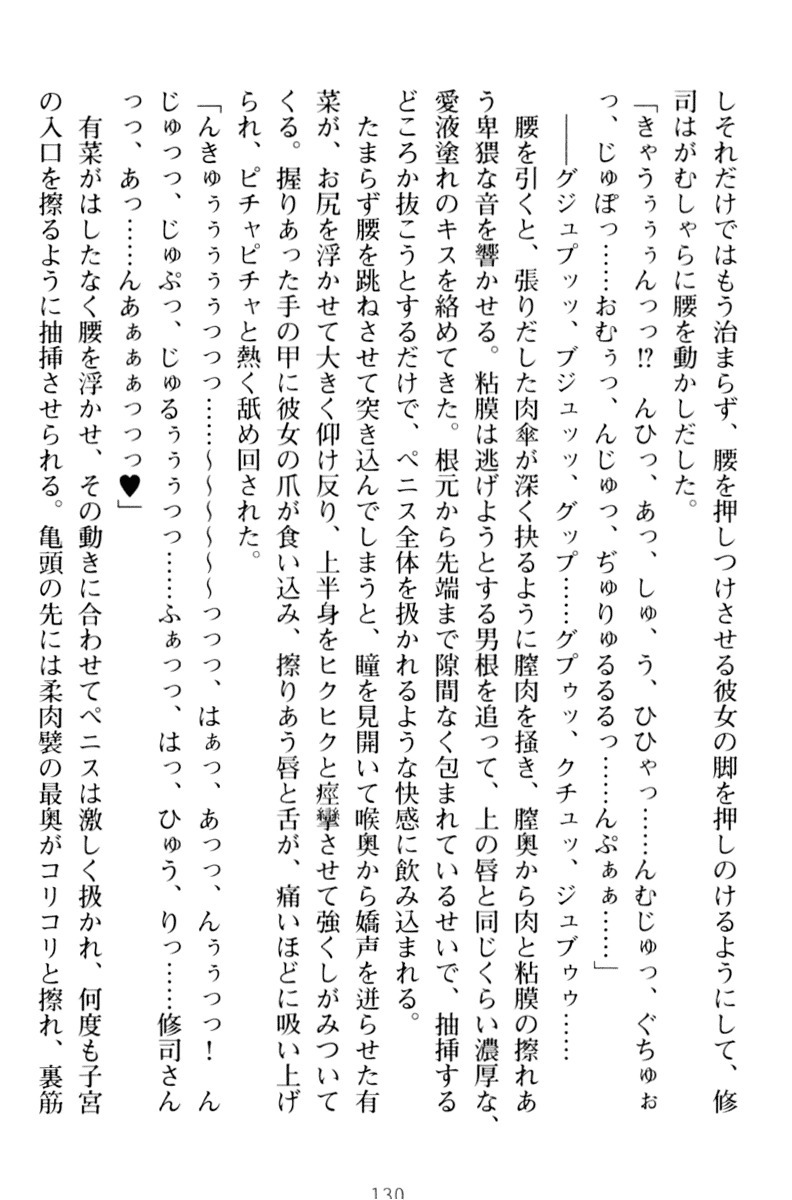 しそれだけではもう治まらず、腰を押しつけさせる彼女の脚を押しのけるようにして、修
司はがむしゃらに腰を動かしだした。
「きゃうぅぅぅんっっ!?　んひっ、あっ、しゅ、う、ひひゃっ……んむじゅっ、ぐちゅぉ
っ、じゅぽっ……おむぅっ、んじゅっ、ぢゅりゅるるるっ……んぷぁぁ……」
――グジュプッッ、ブジュッッ、グップ……グプゥッ、クチュッ、ジュブゥゥ……
腰を引くと、張りだした肉傘が深く抉るように膣肉を掻き、膣奥から肉と粘膜の擦れあ
う卑猥な音を響かせる。粘膜は逃げようとする男根を追って、上の唇と同じくらい濃厚な、
愛液塗れのキスを絡めてきた。根元から先端まで隙間なく包まれているせいで、抽挿する
どころか抜こうとするだけで、ペニス全体を扱かれるような快感に飲み込まれる。
たまらず腰を跳ねさせて突き込んでしまうと、瞳を見開いて喉奥から嬌声を迸らせた有
菜が、お尻を浮かせて大きく仰け反り、上半身をヒクヒクと痙攣させて強くしがみついて
くる。握りあった手の甲に彼女の爪が食い込み、擦りあう唇と舌が、痛いほどに吸い上げ
られ、ピチャピチャと熱く舐め回された。
「んきゅぅぅぅぅぅっっっ……～～～～～～っっっ、はぁっ、あっっ、んぅぅっっ！　ん
じゅっっ、じゅぷっ、じゅるぅぅぅっっ……ふぁっっ、はっ、ひゅう、りっ……修司さん
っっ、あっ……んあぁぁぁっっっ♥」
有菜がはしたなく腰を浮かせ、その動きに合わせてペニスは激しく扱かれ、何度も子宮
の入口を擦るように抽挿させられる。亀頭の先には柔肉襞の最奥がコリコリと擦れ、裏筋
130